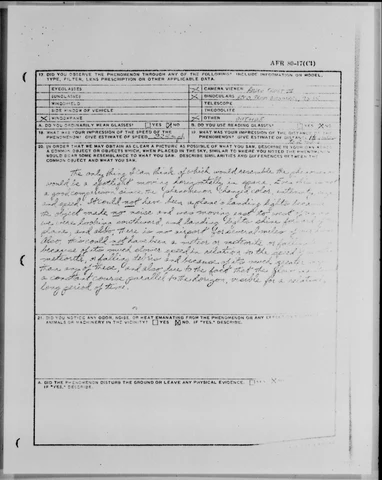 AFR 80-17(C1)
17. DID YOU OBSERVE THE PHENOMENON THROUGH ANY OF THE FOLLOWING? INCLUDE INFORMATION ON MODEL, TYPE, FILTER, LENS PRESCRIPTION OR OTHER APPLICABLE DATA.
EYEGLASSES CAMERA VIEWER
SUNGLASSES X BINOCULARS
WINDSHIELD TELESCOPE
SIDE WINDOW OF VEHICLE THEODOLITE
WINDOWPANE X OTHER
A. DO YOU ORDINARILY WEAR GLASSES? YES X NO B. DO YOU USE READING GLASSES? YES X NO
18. WHAT WAS YOUR IMPRESSION OF THE SPEED OF THE PHENOMENON? GIVE ESTIMATE OF SPEED 19. WHAT WAS YOUR IMPRESSION OF THE DISTANCE OF THE PHENOMENON? GIVE ESTIMATE OF DISTANCE
20. IN ORDER THAT WE MAY OBTAIN AS CLEAR A PICTURE AS POSSIBLE OF WHAT YOU SAW, DESCRIBE
A COMMON OBJECT OR OBJECTS WHICH, WHEN PLACED IN THE SKY, SIMILAR TO WHERE YOU NOTED THE PHENOMENON,
WOULD BEAR SOME RESEMBLANCE TO WHAT YOU SAW. DESCRIBE SIMILARITIES AND DIFFERENCES BETWEEN THE
COMMON OBJECT AND WHAT YOU SAW.
The only thing I can think of which would resemble the
would be a spotlight moving horizontally in space, it is not
a good comparison since the phenomenon changed color, intensity
and speed. It could not have been a plane's landing lights since
the object made no noise and was moving east to west
we were looking southward, and landing lights shine forward of
plane, and also, there is no airport for several miles
Also this could not have been a meteor or meteorite or
because of its much slower speed in relation to the speed
meteorite, or falling debris and because of its much greater
than any of these, and also due to the fact that the
a constant course, parallel to the horizon, visible for a relatively
long period of time.
21. DID YOU NOTICE ANY ODOR, NOISE OR HEAT EMANATING FROM THE PHENOMENON OR ANY
ANIMALS OR MACHINERY IN THE VICINITY? YES X NO. IF "YES," DESCRIBE.
A. DID THE PHENOMENON DISTURB THE GROUND OR LEAVE ANY PHYSICAL EVIDENCE. X
IF "YES," DESCRIBE.